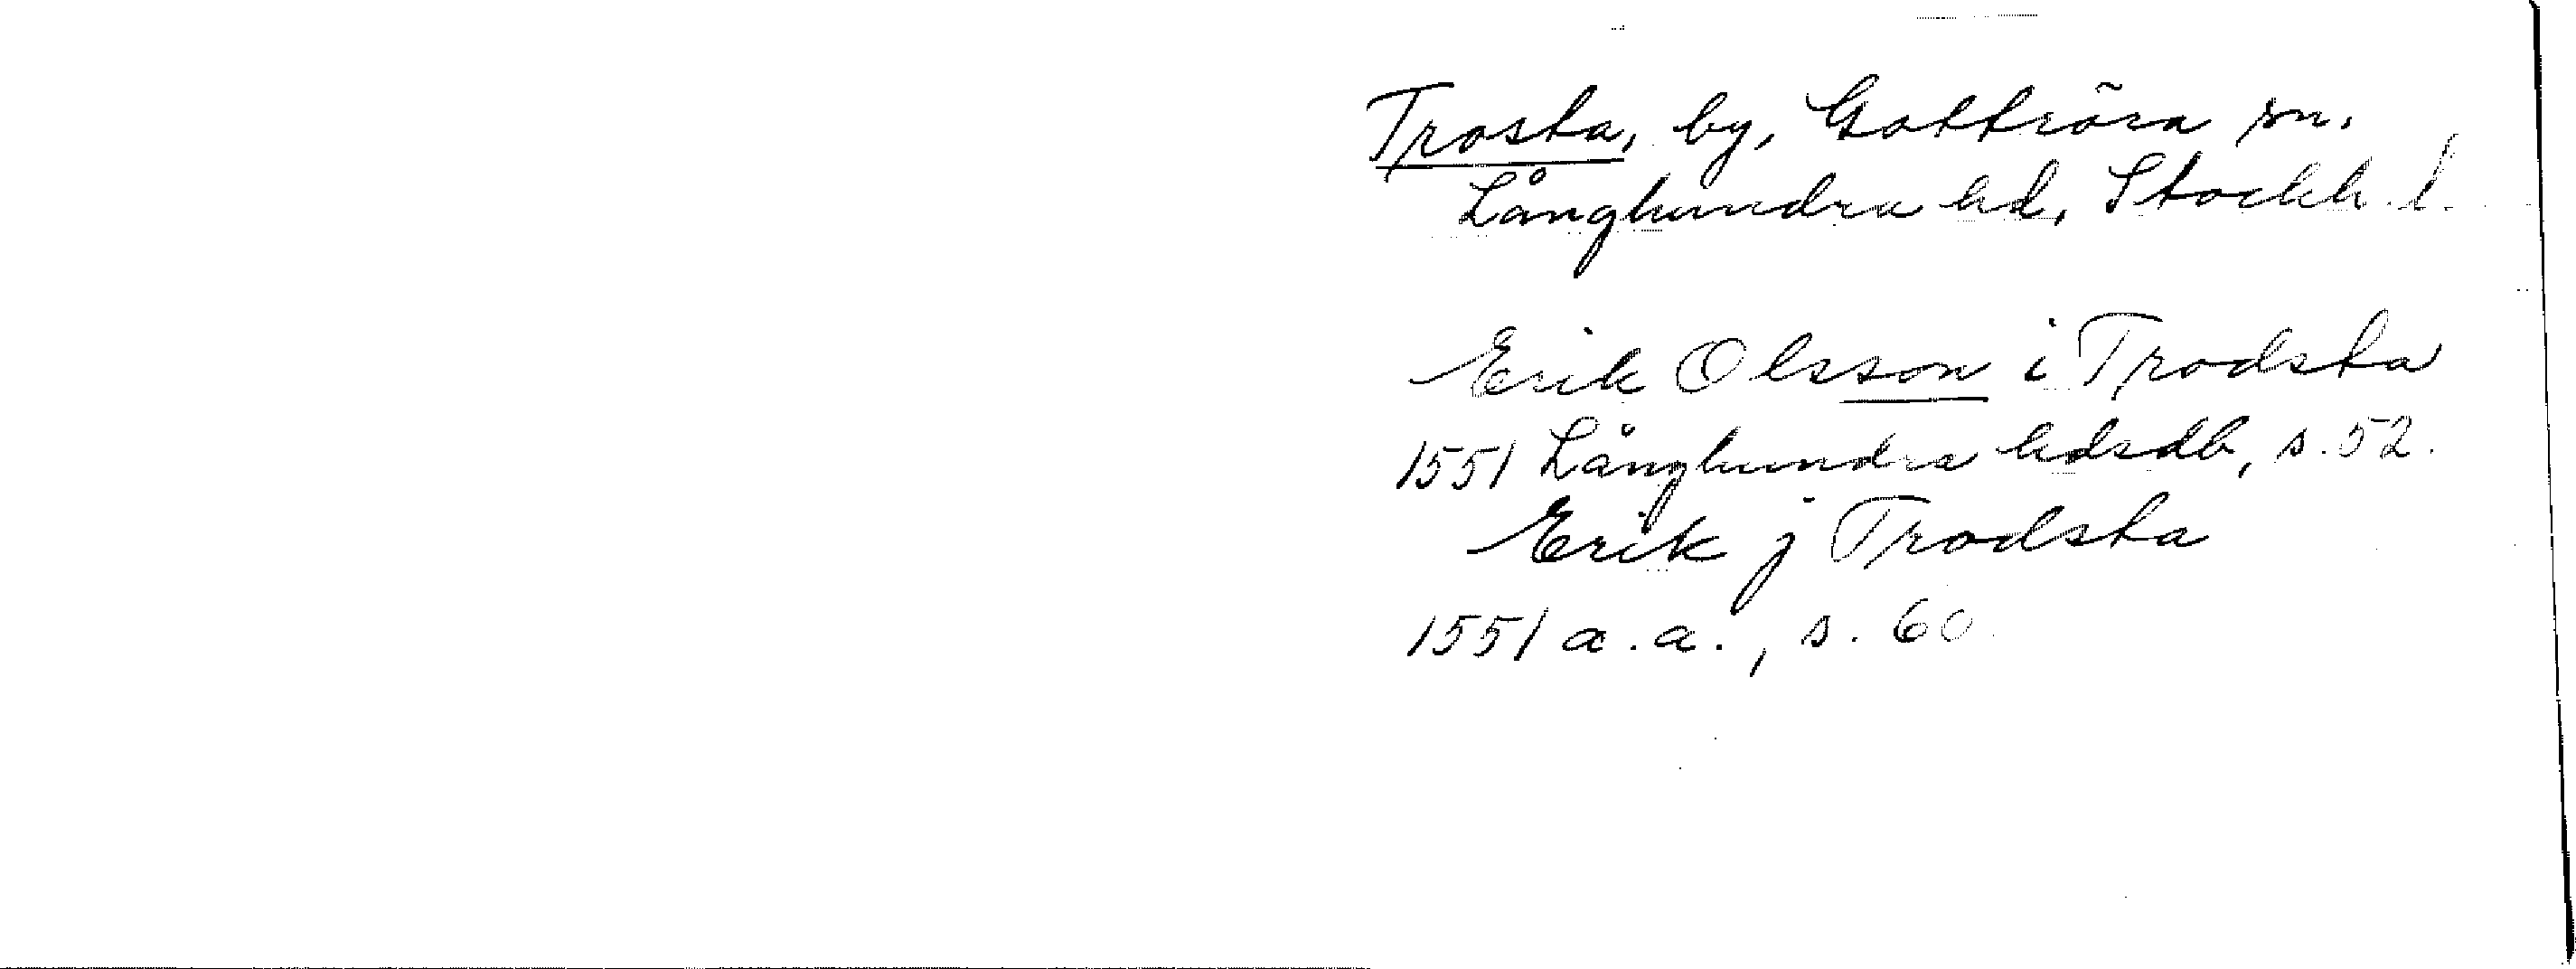 Trosta, by, Gottröra sn.
Långhundra hd, Stockh. l.
Erik Olsson i Trodsta
1551 Långhundra hdsdb, s. 52.
Erik j Trodsta
1551 a.a., s. 60.